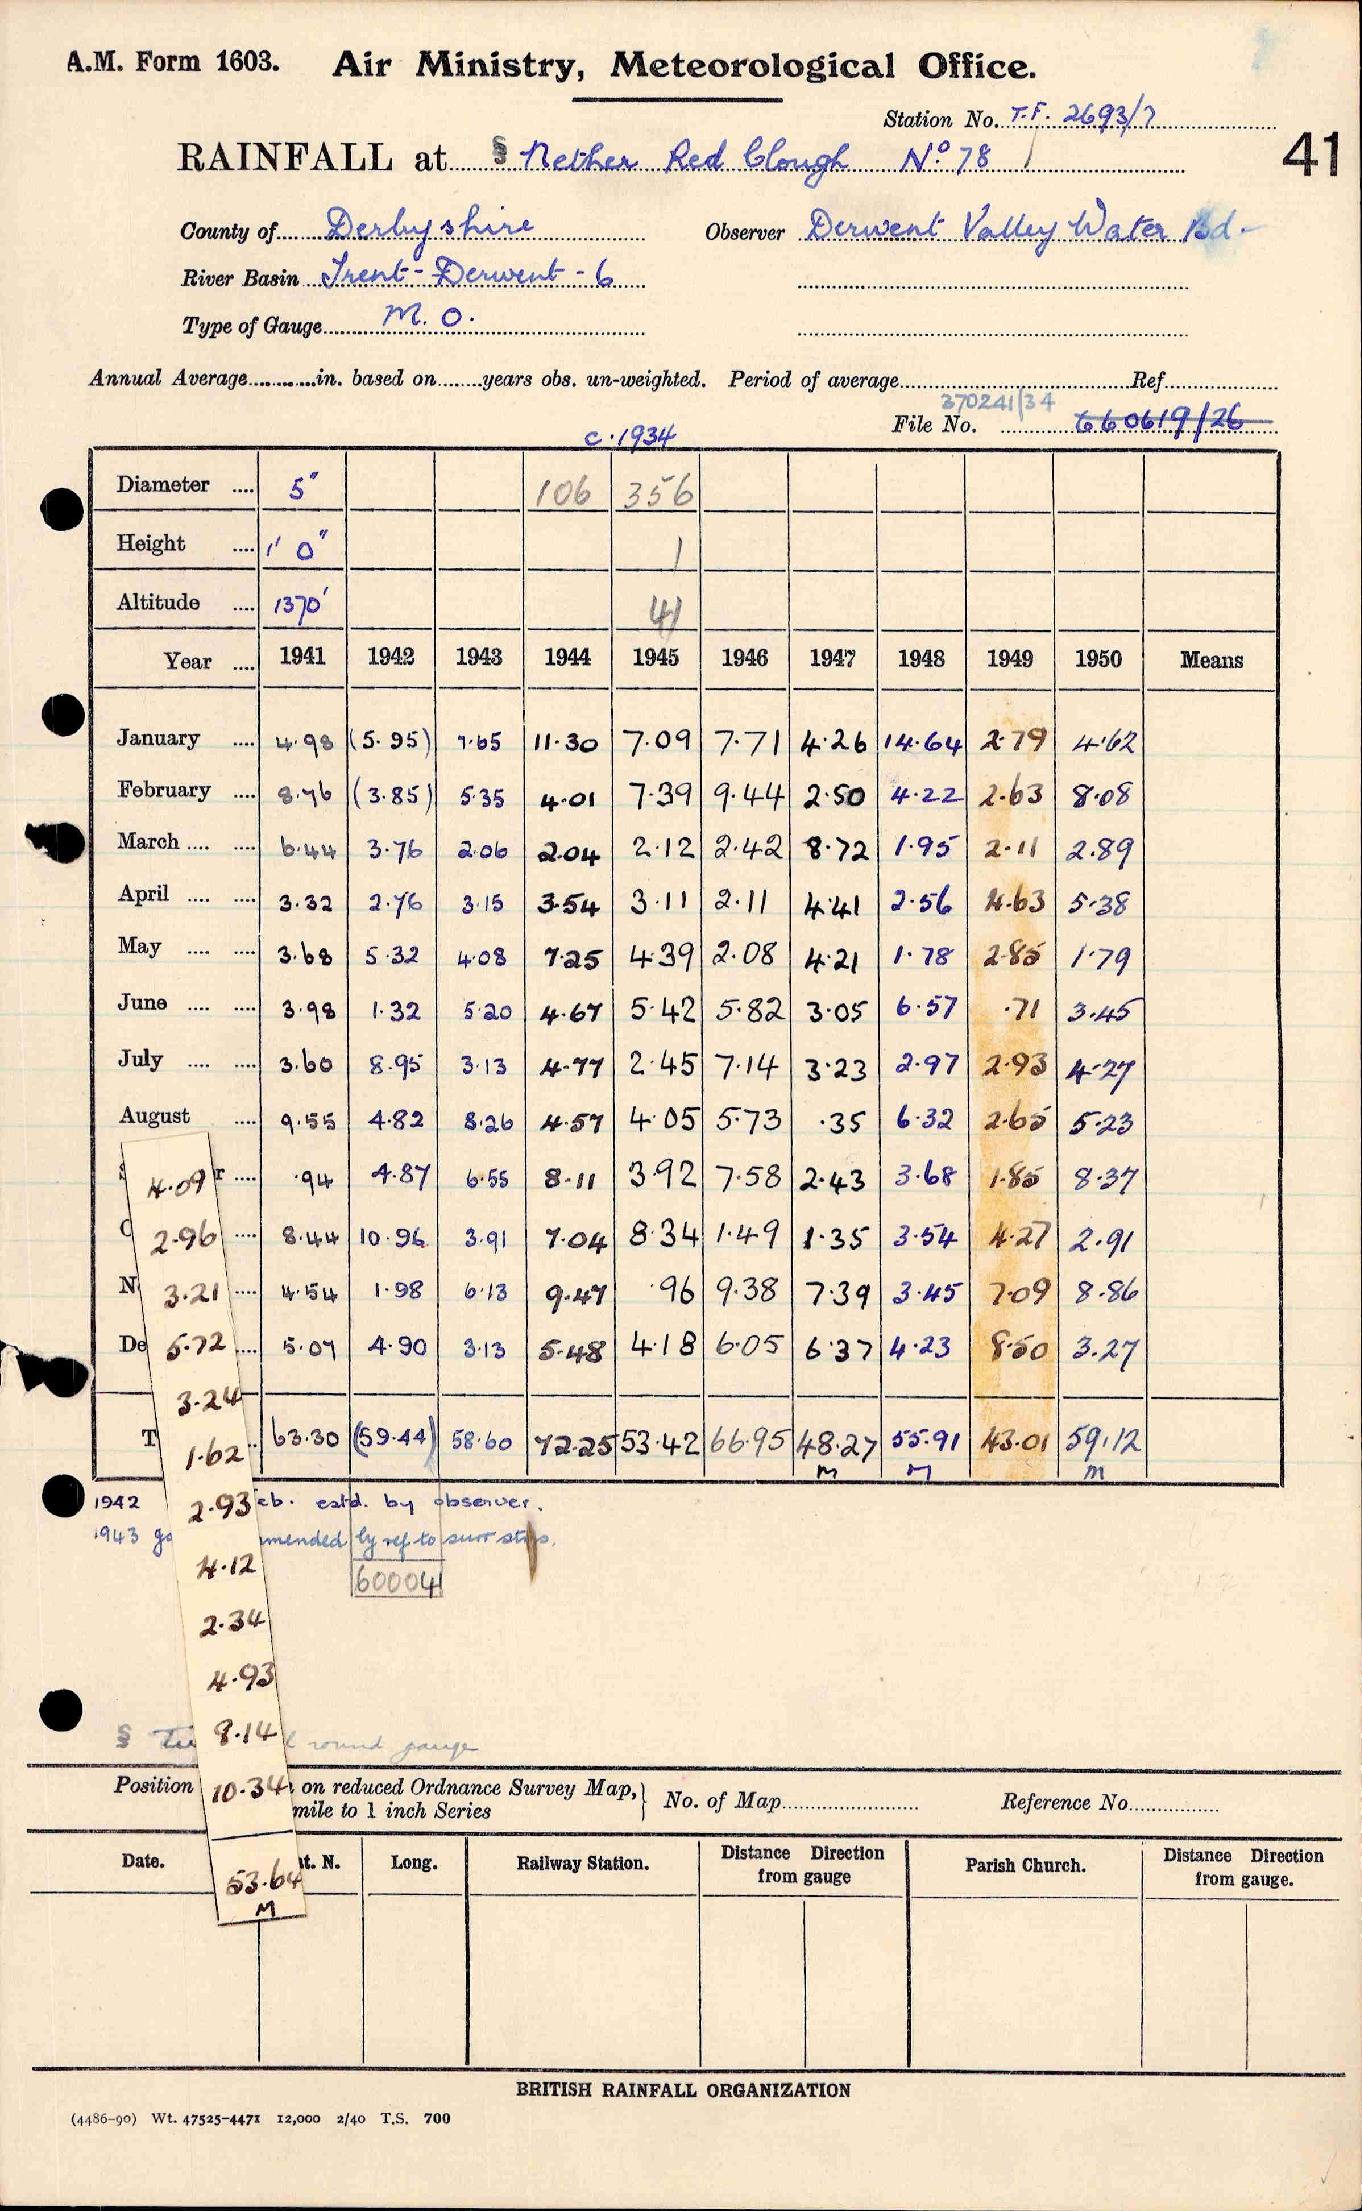 A.M. Form 1603. Air Ministry, Meteorological Office.
Station No. T.F. 2693/7
RAINFALL at § Nether Red Clough No. 78
41
County of Derbyshire Observer Derwent Valley Water Bd.
River Basin Trent-Derwent-6
Type of Gauge M.O.
Annual Average in. based on years obs. un-weighted. Period of average Ref.
370241/34
File No. 660619/26
c.1934
Diameter 5" 106 356
Height 1' 0" 1
Altitude 1370' 41
Year 1941 1942 1943 1944 1945 1946 1947 1948 1949 1950 Means
January 4.98 (5.95) 7.65 11.30 7.09 7.71 4.26 14.64 2.79 4.62
February 8.76 (3.85) 5.35 4.01 7.39 9.44 2.50 4.22 2.63 8.08
March 6.44 3.76 2.06 2.04 2.12 2.42 8.72 1.95 2.11 2.89
April 3.32 2.76 3.15 3.54 3.11 2.11 4.41 2.56 4.63 5.38
May 3.68 5.32 4.08 7.25 4.39 2.08 4.21 1.78 2.85 1.79
June 3.98 1.32 5.20 4.67 5.42 5.82 3.05 6.57 .71 3.45
July 3.60 8.95 3.13 4.77 2.45 7.14 3.23 2.97 2.93 4.27
August 9.55 4.82 8.26 4.57 4.05 5.73 .35 6.32 2.65 5.23
4.09 r .94 4.87 6.55 8.11 3.92 7.58 2.43 3.68 1.85 8.37
2.96 8.44 10.96 3.91 7.04 8.34 1.49 1.35 3.54 4.27 2.91
N 3.21 4.54 1.98 6.13 9.47 .96 9.38 7.39 3.45 7.09 8.86
De 5.72 5.07 4.90 3.13 5.48 4.18 6.05 6.37 4.23 8.50 3.27
3.24
T 1.62 63.30 (59.44) 58.60 72.25 53.42 66.95 48.27 55.91 43.01 59.12
M M M
1942 2.93 eb. estd. by observer.
1943 ga mended by ref to surr stns.
4.12
60004
2.34
4.93
8.14
§ Tu round gauge
Position 10.34 on reduced Ordnance Survey Map, No. of Map Reference No.
mile to 1 inch Series
Date. at. N. Long. Railway Station. Distance Direction from gauge Parish Church. Distance Direction from gauge.
53.64
M
BRITISH RAINFALL ORGANIZATION
(4486-90) Wt. 47525-4471 12,000 2/40 T.S. 700